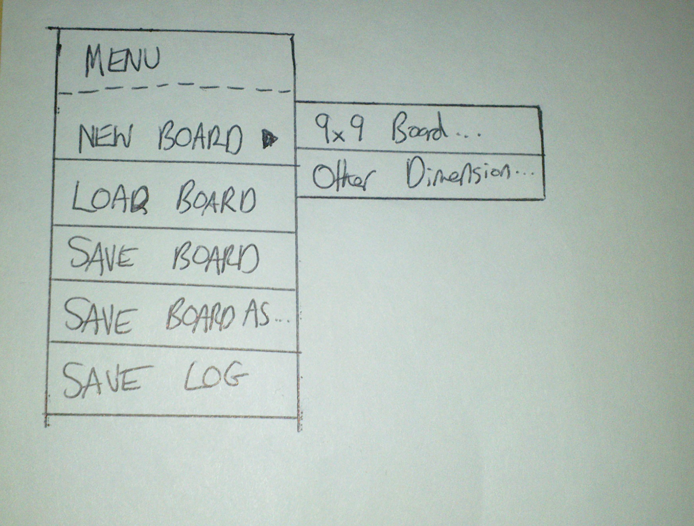 MENU
NEW BOARD ▶
9x9 Board...
Other Dimension...
LOAD BOARD
SAVE BOARD
SAVE BOARD AS...
SAVE LOG